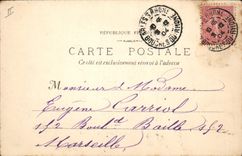 II
CARTE POSTALE
Ce côté est exclusivement réservé à l'adresse
Monsieur et Madame
Eugène Carriol
152 Boul^d Baille 152
Marseille